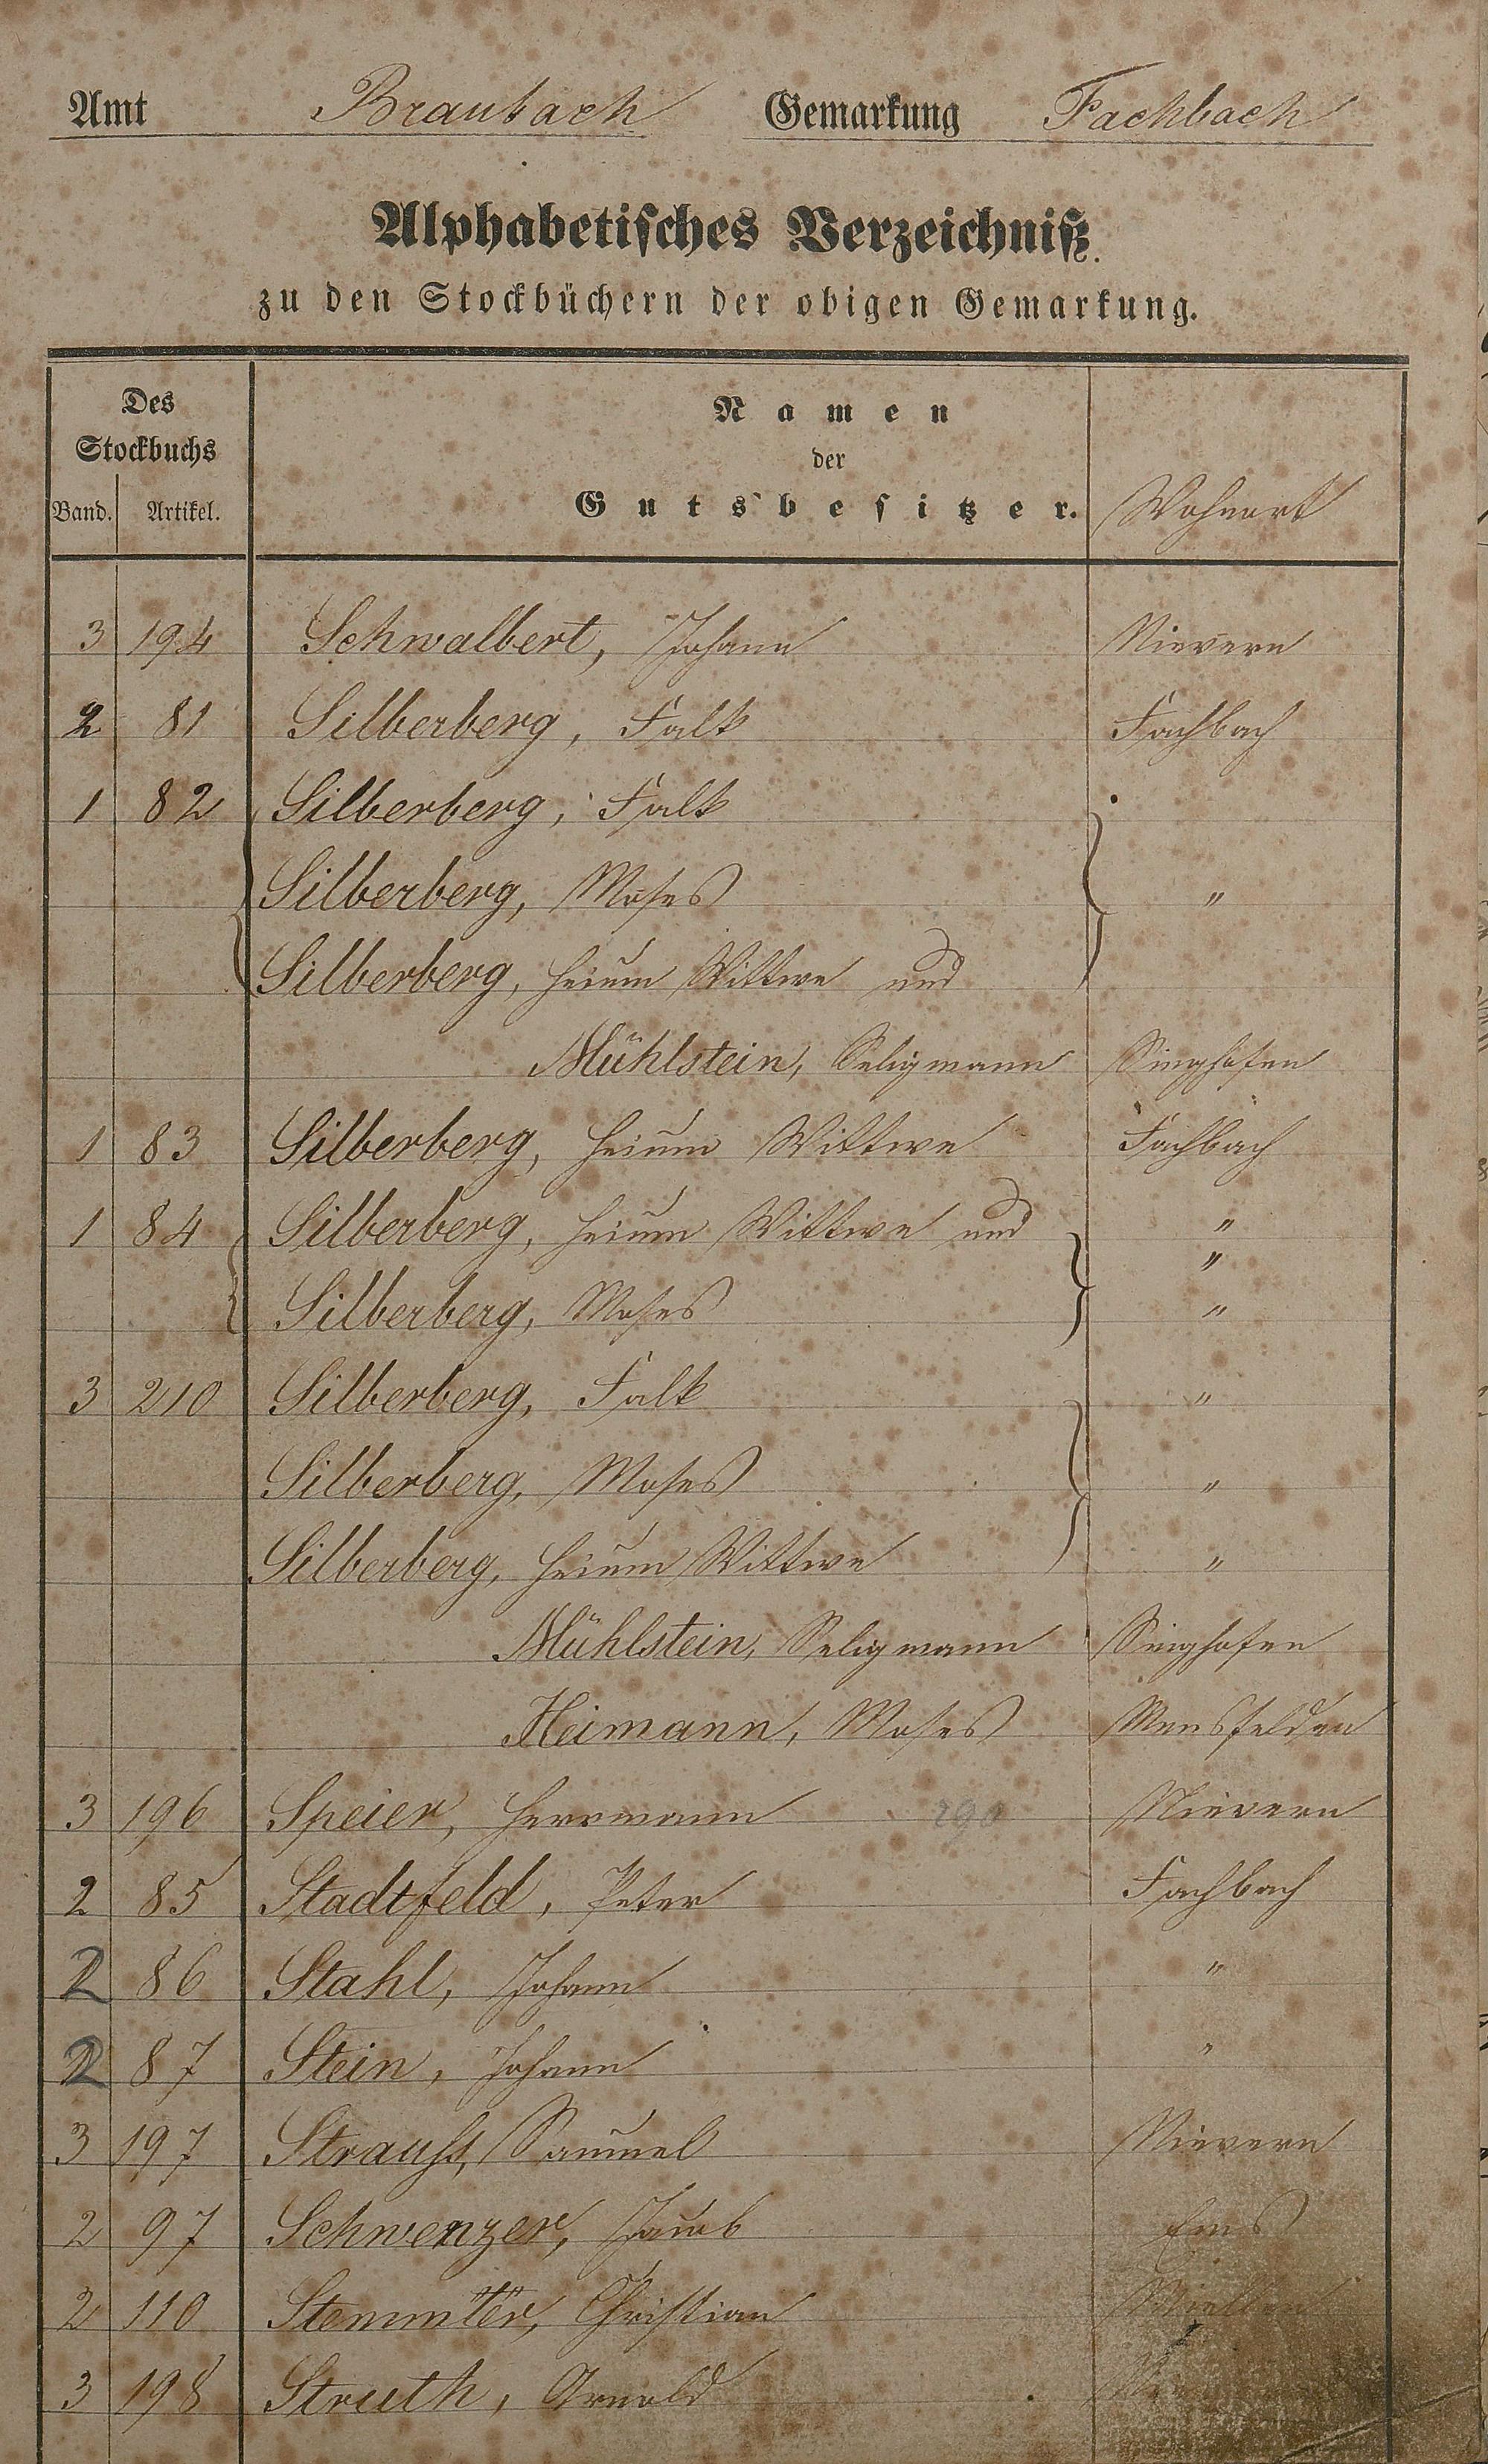 Amt Braubach Gemarkung Fachbach
Alphabetisches Verzeichniß.
zu den Stockbüchern der obigen Gemarkung.
Des Stockbuchs
Band. Artikel.
Namen
der
Gutsbesitzer.
Wohnort
3 194 Schwalbert, Johann Nievern
2 81 Silberberg, Falk Fachbach
1 82 Silberberg, Falk
Silberberg, Moses "
Silberberg, Heium Wittwe und
Mühlstein, Seligmann Singhofen
1 83 Silberberg, Heium Wittwe Fachbach
1 84 Silberberg, Heium Wittwe und "
"
Silberberg, Moses "
3 210 Silberberg, Falk "
Silberberg, Moses "
Silberberg, Heium Wittwe "
Mühlstein, Seligmann Singhofen
Heimann, Moses Mensfelden
3 196 Speier, Herrmann 190 Nievern
2 85 Stadtfeld, Peter Fachbach
2 86 Stahl, Johann "
2 87 Stein, Johann "
3 197 Strauß, Samuel Nievern
2 97 Schwenzer, Jacob Ems
2 110 Stemmler, Christian Miellen
3 198 Struth, Arnold